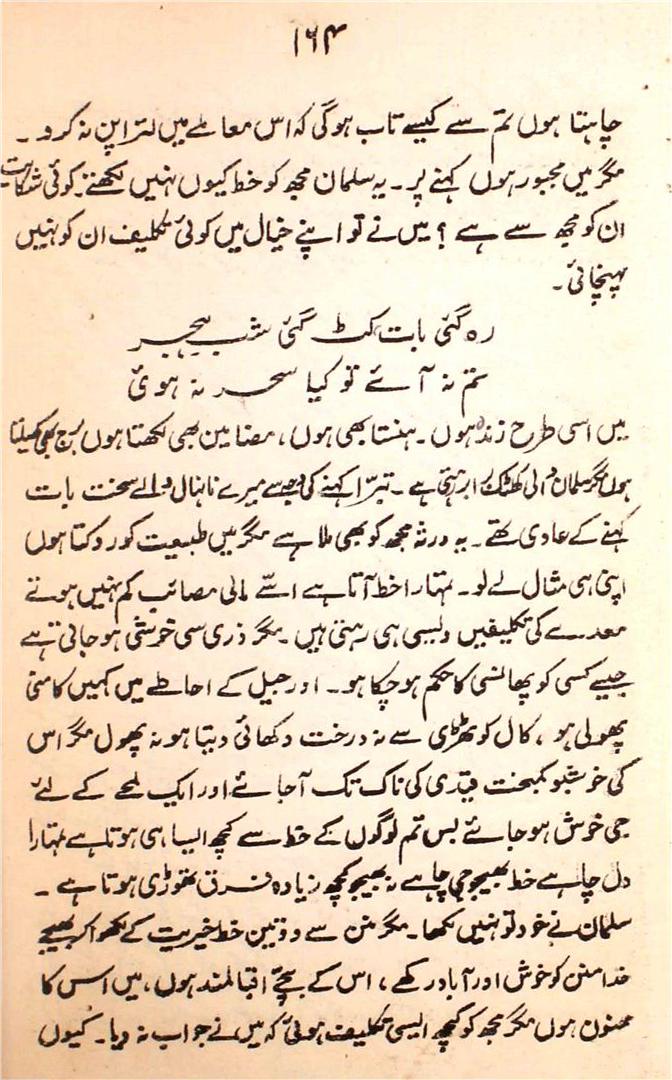 ۱۶۴
چاہتا ہوں تم سے کیسے تاب ہوگی کہ اس معاملے میں لترا پن نہ کرو۔
مگر میں مجبور ہوں کہنے پر۔ یہ سلمان مجھ کو خط کیوں نہیں لکھتے۔ کوئی شکایت
ان کو مجھ سے ہے؟ میں نے تو اپنے خیال میں کوئی تکلیف ان کو نہیں
پہنچائی۔
رہ گئی بات کٹ گئی شبِ ہجر
تم نہ آئے تو کیا سحر نہ ہوئی
میں اسی طرح زندہ ہوں۔ ہنستا بھی ہوں، مضامین بھی لکھتا ہوں برج بھی کھیلتا
ہوں مگر سلمان والی کھٹک برابر رہتی ہے۔ تبرّا کہنے کی وجہ سے میرے نانہال والے سخت بات
کہنے کے عادی تھے۔ یہ ورثہ مجھ کو بھی ملا ہے مگر میں طبیعت کو روکتا ہوں
اپنی ہی مثال لے لو۔ تمہارا خط آتا ہے اس سے مالی مصائب کم نہیں ہوتے
معدے کی تکلیفیں ویسی ہی رہتی ہیں۔ مگر ذری سی خوشی ہو جاتی ہے
جیسے کسی کو پھانسی کا حکم ہو چکا ہو۔ اور جیل کے احاطے میں کہیں کامنی
پھولی ہو، کال کوٹھڑی سے نہ درخت دکھائی دیتا ہو نہ پھول مگر اس
کی خوشبو کمبخت قیدی کی ناک تک آجائے اور ایک لمحے کے لئے
جی خوش ہو جائے بس تم لوگوں کے خط سے کچھ ایسا ہی ہوتا ہے تمہارا
دل چاہے خط بھیجو جی چاہے نہ بھیجو کچھ زیادہ فرق تھوڑی ہوتا ہے۔
سلمان نے خود تو نہیں لکھا۔ مگر منن سے دو تین خط خیریت کے لکھوا کر بھیجے
خدا منن کو خوش اور آباد رکھے، اس کے بچے اقبالمند ہوں، میں اس کا
ممنون ہوں مگر مجھ کو کچھ ایسی تکلیف ہوئی کہ میں نے جواب نہ دیا۔ کیوں